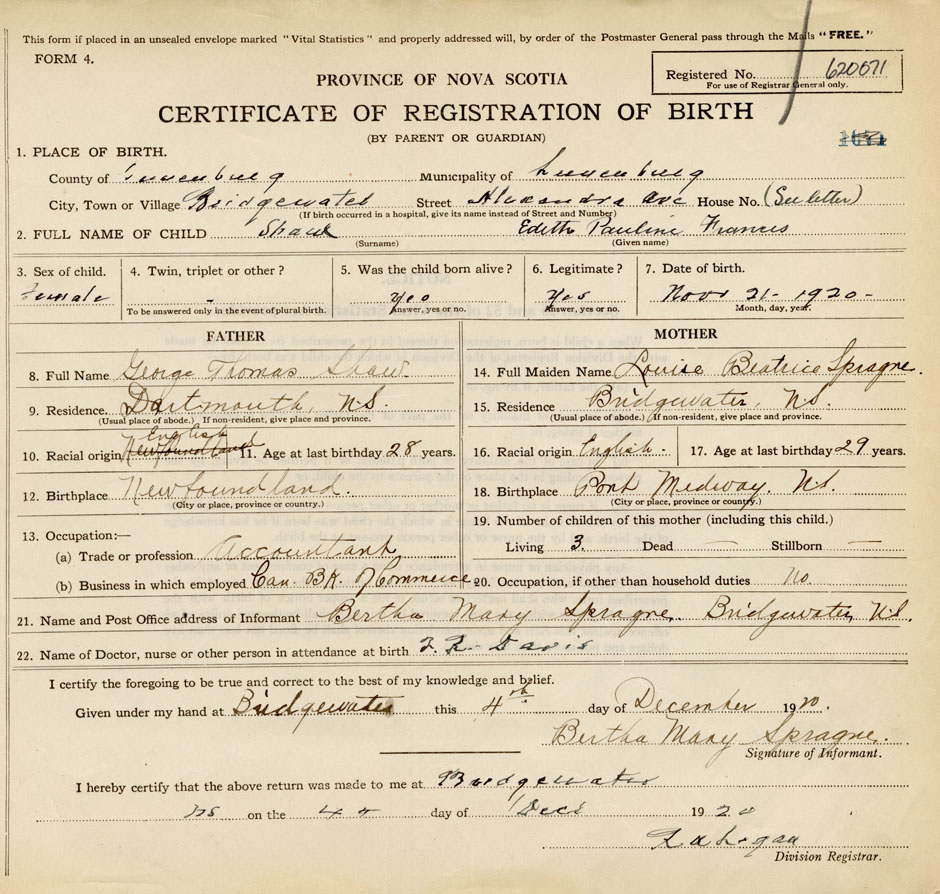 This form if placed in an unsealed envelope marked "Vital Statistics" and properly addressed will, by order of the Postmaster General pass through the Mails "FREE."
FORM 4.
Registered No. 620071
For use of Registrar General only.
PROVINCE OF NOVA SCOTIA
CERTIFICATE OF REGISTRATION OF BIRTH
(BY PARENT OR GUARDIAN)
1. PLACE OF BIRTH.
County of Lunenburg Municipality of Lunenburg
City, Town or Village Bridgewater Street Alexandra Ave House No. (See letter)
(If birth occurred in a hospital, give its name instead of Street and Number)
2. FULL NAME OF CHILD Shaw Edith Pauline Francis
(Surname) (Given name)
3. Sex of child. 4. Twin, triplet or other? 5. Was the child born alive? 6. Legitimate? 7. Date of birth.
Female - Yes Yes Novr 21 - 1920 -
To be answered only in the event of plural birth. Answer, yes or no. Answer, yes or no. Month, day, year.
FATHER
8. Full Name George Thomas Shaw.
9. Residence. Dartmouth, N.S.
(Usual place of abode.) If non-resident, give place and province.
English
10. Racial origin Newfoundland 11. Age at last birthday 28 years.
12. Birthplace Newfoundland.
(City or place, province or country.)
13. Occupation:—
(a) Trade or profession Accountant
(b) Business in which employed Can. Bk. of Commerce
MOTHER
14. Full Maiden Name Louise Beatrice Sprague.
15. Residence Bridgewater, N.S.
(Usual place of abode.) If non-resident, give place and province.
16. Racial origin English. 17. Age at last birthday 29 years.
18. Birthplace Port Medway, N.S.
(City or place, province or country.)
19. Number of children of this mother (including this child.)
Living 3. Dead — Stillborn —
20. Occupation, if other than household duties No.
21. Name and Post Office address of Informant Bertha Mary Sprague. Bridgewater, N.S.
22. Name of Doctor, nurse or other person in attendance at birth F. R. Davis
I certify the foregoing to be true and correct to the best of my knowledge and belief.
Given under my hand at Bridgewater this 4th day of December 1920.
Bertha Mary Sprague.
Signature of Informant.
I hereby certify that the above return was made to me at Bridgewater
NS on the 4th day of Decr 1920
Division Registrar.